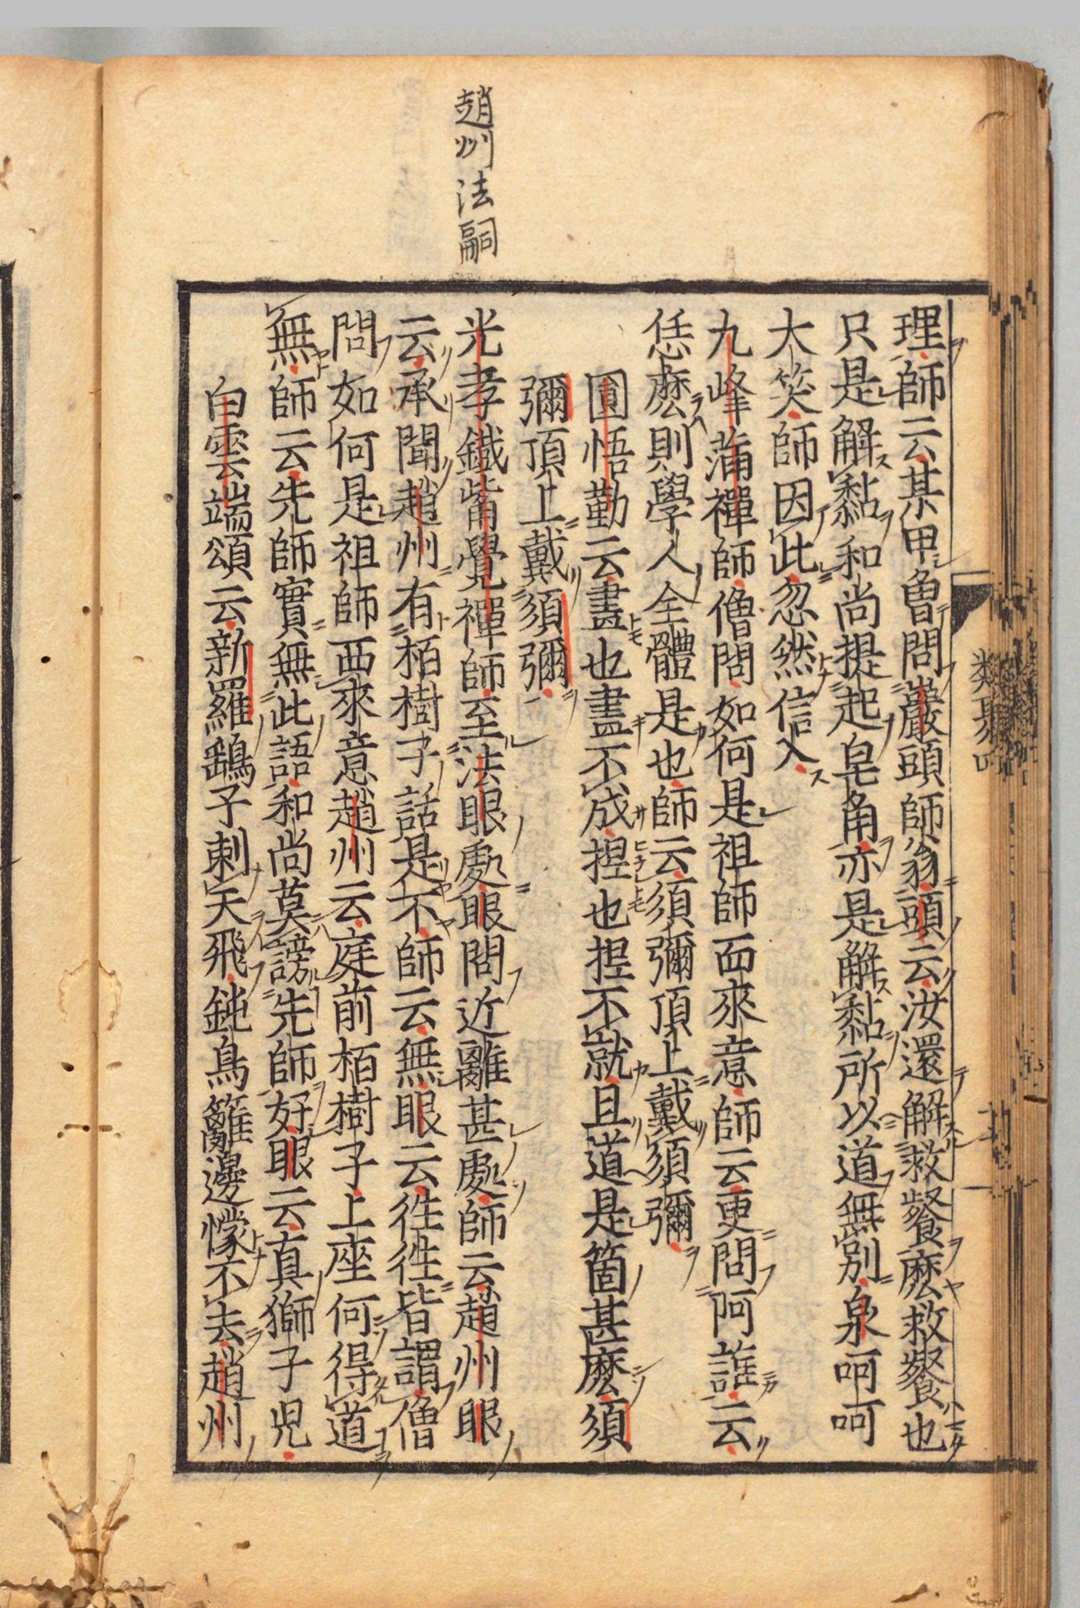 趙州法嗣
理師云某甲魯問巖頭師翁頭云汝還解救餐麼救餐也
只是解黏和尚提起皂角亦是解黏所以道無別泉呵呵
大笑師因此忽然信入
九峰蒲禪師僧問如何是祖師西來意師云更問阿誰云
恁麼則學人全體是也師云須彌頂上戴須彌
圓悟勤云盡也盡不成揑也揑不就且道是箇甚麼須
彌頂上戴須彌
光孝鐵觜覺禪師至法眼處眼問近離甚處師云趙州眼
云承聞趙州有栢樹子話是不師云無眼云徃徃皆謂僧
問如何是祖師西來意趙州云庭前栢樹子上座何得道
無師云先師實無此語和尚莫謗先師好眼云真獅子児
白雲端頌云新羅鷂子刺天飛鈍鳥籬邊懞不去趙州